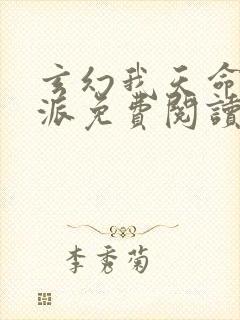 玄幻我天命
派免費閱讀
李秀菊